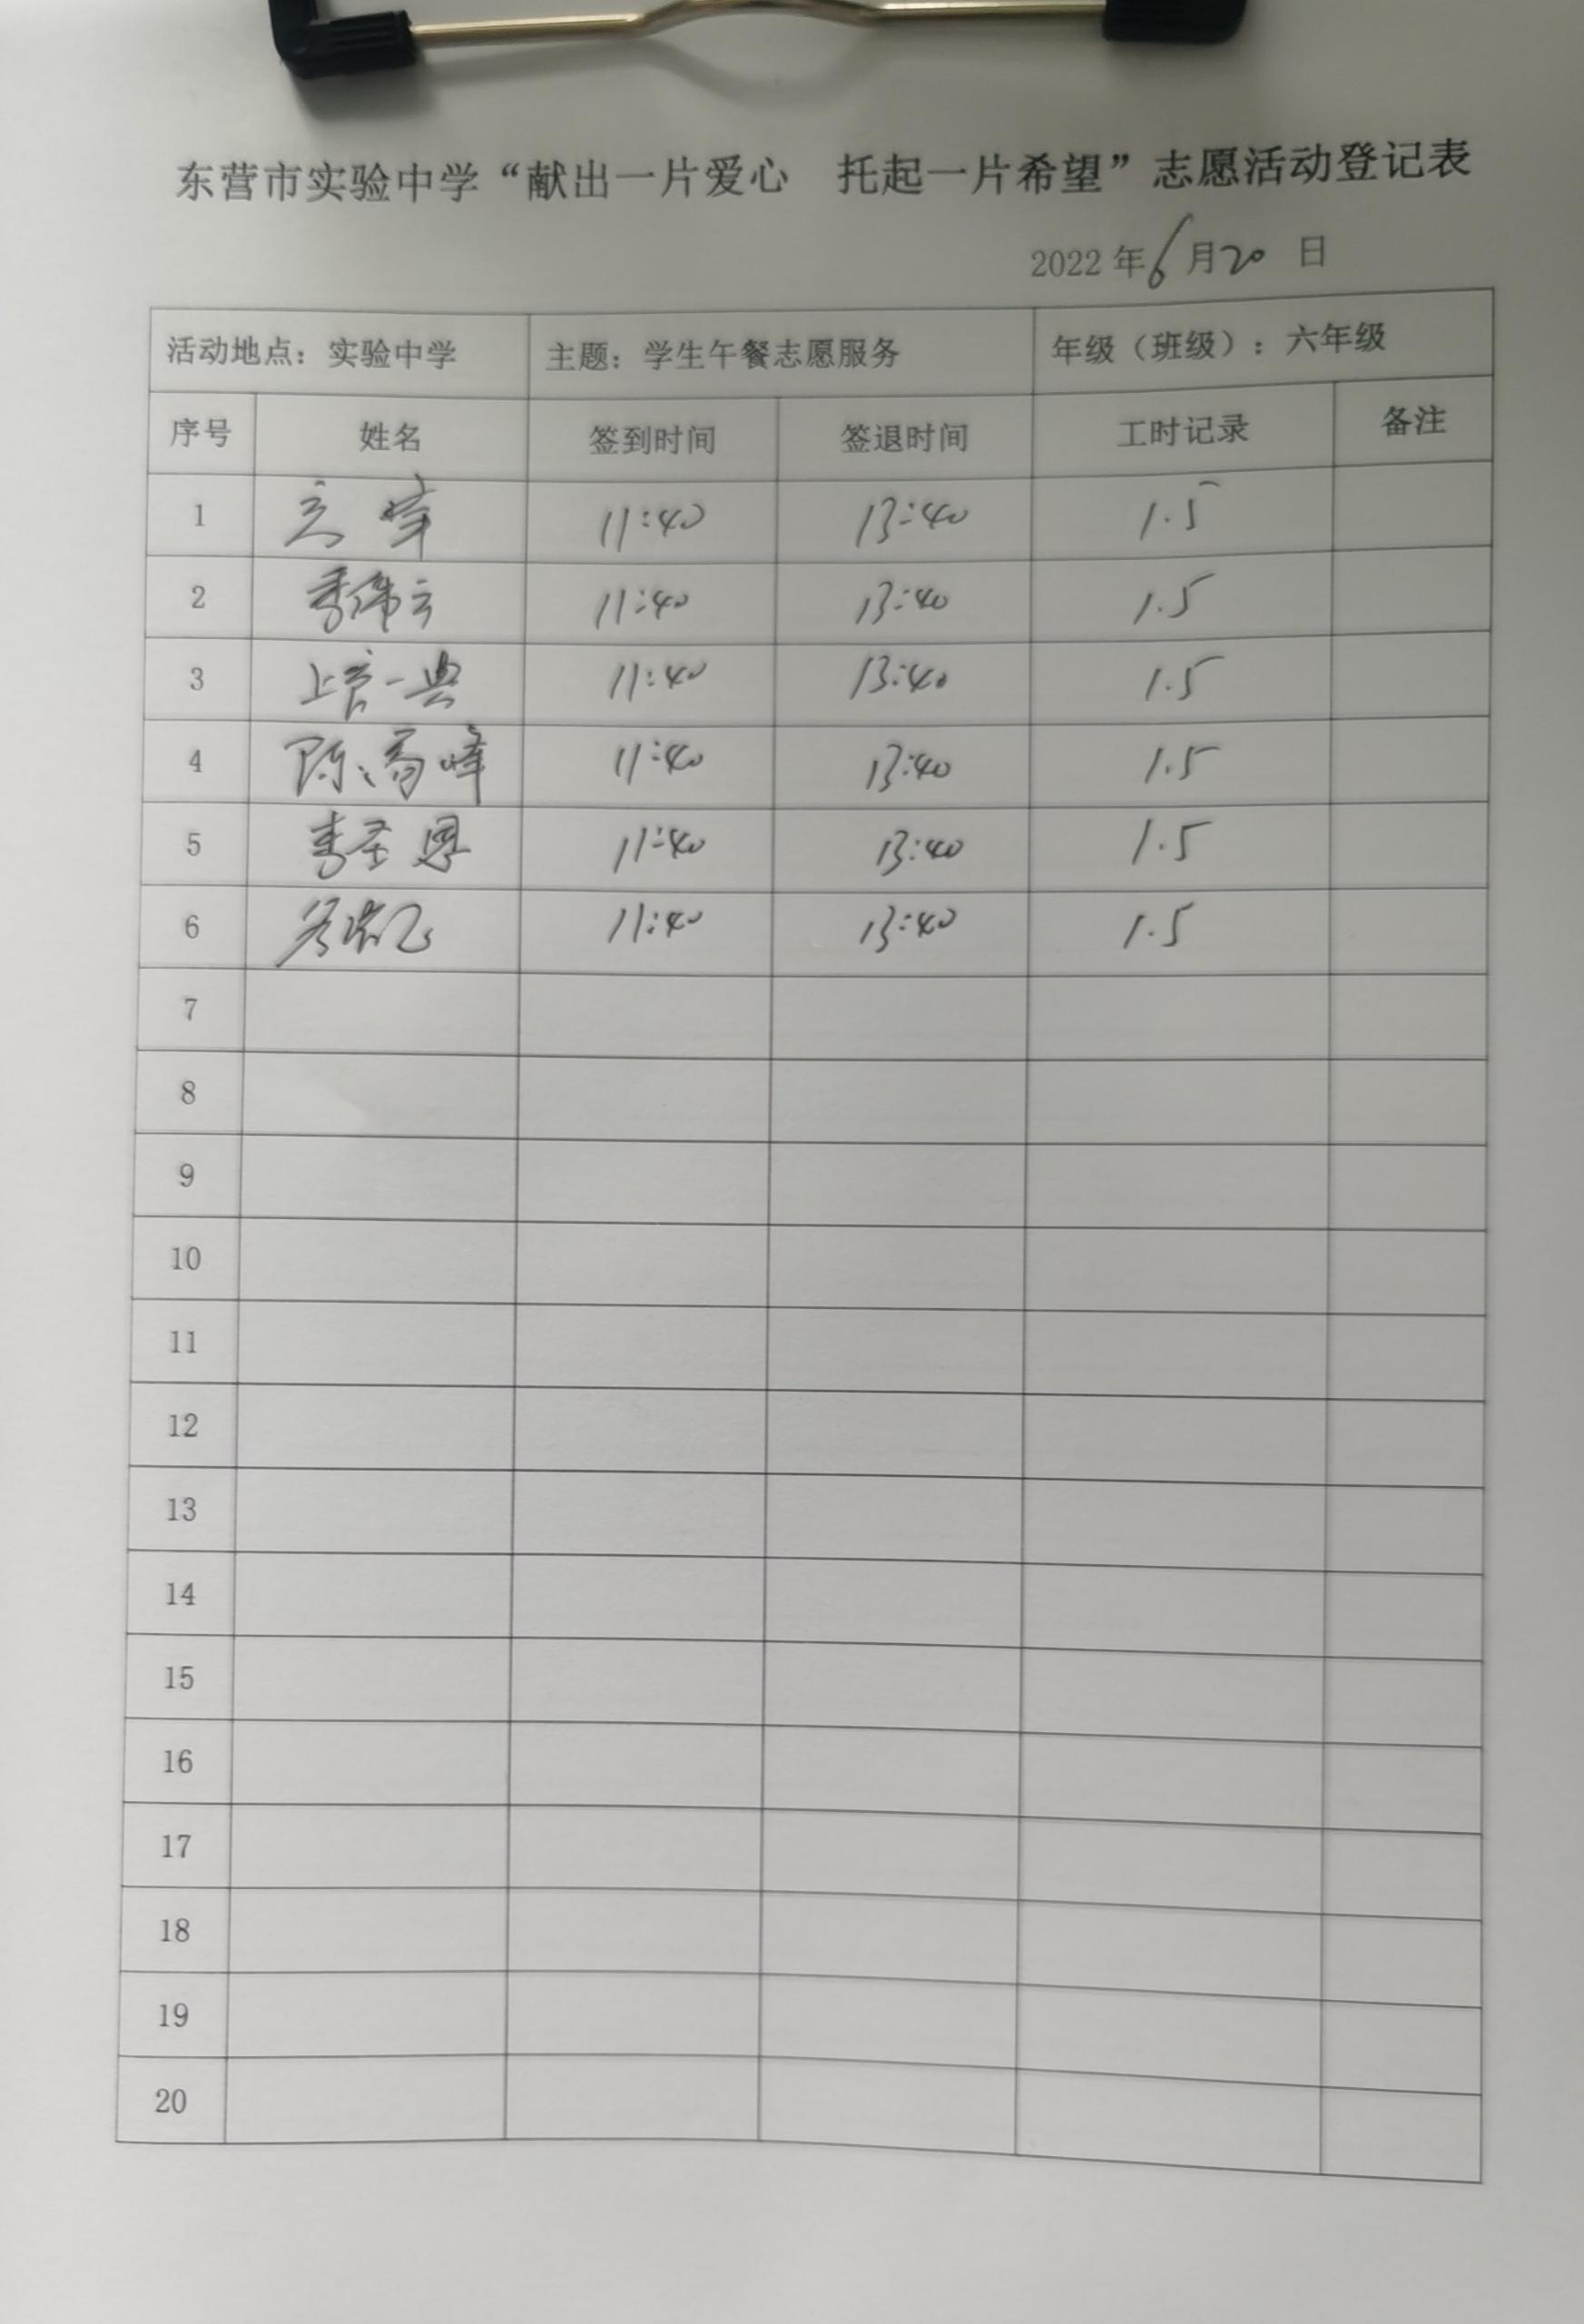 东营市实验中学“献出一片爱心 托起一片希望”志愿活动登记表
2022年6月20日
活动地点：实验中学 主题：学生午餐志愿服务 年级（班级）：六年级
序号 姓名 签到时间 签退时间 工时记录 备注
1 11:40 13:40 1.5
2 11:40 13:40 1.5
3 上官一典 11:40 13:40 1.5
4 陈 峰 11:40 13:40 1.5
5 李圣恩 11:40 13:40 1.5
6 11:40 13:40 1.5
7
8
9
10
11
12
13
14
15
16
17
18
19
20